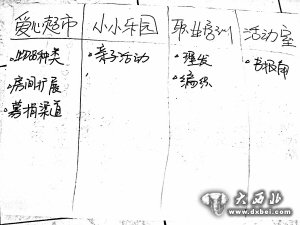 爱心超市 小小乐园 职业培训 活动室
·亲子活动 ·理发 ·书报角
·房间扩展 ·编织
·募捐渠道
大西北
www.dxbei.com